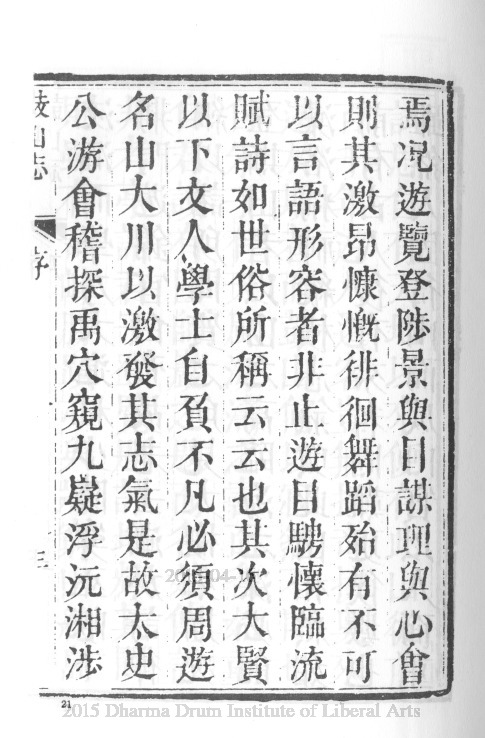 焉况遊覽登陟景與目謀理與心會
則其激昂慷慨徘徊舞蹈殆有不可
以言語形容者非止遊目騁懷臨流
賦詩如世俗所稱云云也其次大賢
以下文人學士自負不凡必須周遊
名山大川以激發其志氣是故太史
公游會稽探禹穴窺九嶷浮沅湘涉
鼓山志
序
三
21
2015 Dharma Drum Institute of Liberal Arts